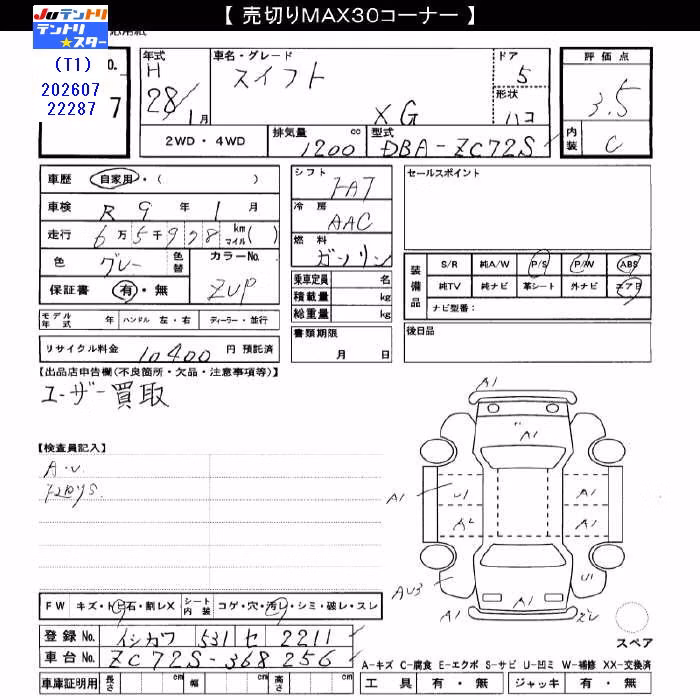 【 売切りMAX30コーナー 】
JUテントリ
テントリ★スター
(T1)
202607
22287
No.
7
年式 H 28/1月
車名・グレード スイフト XG
ドア 5
形状 ハコ
評価点 3.5
内装 C
2WD・4WD
排気量 1200 cc
型式 DBA-ZC72S
車歴 自家用・( )
車検 R 9 年 1 月
走行 6万5千928 km マイル( )
色 グレー 色替
カラーNo. ZUP
保証書 有・無
モデル年式 年 ハンドル 左・右 ディーラー・並行
リサイクル料金 10400 円 預託済
シフト FAT
冷房 AAC
燃料 ガソリン
乗車定員 名
積載量 kg
総重量 kg
書類期限 月 日
セールスポイント
装備品
S/R 純A/W P/S P/W ABS
純TV 純ナビ 革シート 外ナビ エアB
ナビ型番:
後日品
【出品店申告欄(不良箇所・欠品・注意事項等)】
ユーザー買取
【検査員記入】
A1
A1
A1
U1
A1
A2
A1
AU3
U1
A1
A1
スペア
FW キズ・トビ石・割レX シート内装 コゲ・穴・汚レ・シミ・破レ・スレ
登録No. イシカワ 531 セ 2211
車台No. ZC72S-368256
車庫証明用 長さ cm 幅 cm 高さ cm
A-キズ C-腐食 E-エクボ S-サビ U-凹ミ W-補修 XX-交換済
工具 有・無 ジャッキ 有・無